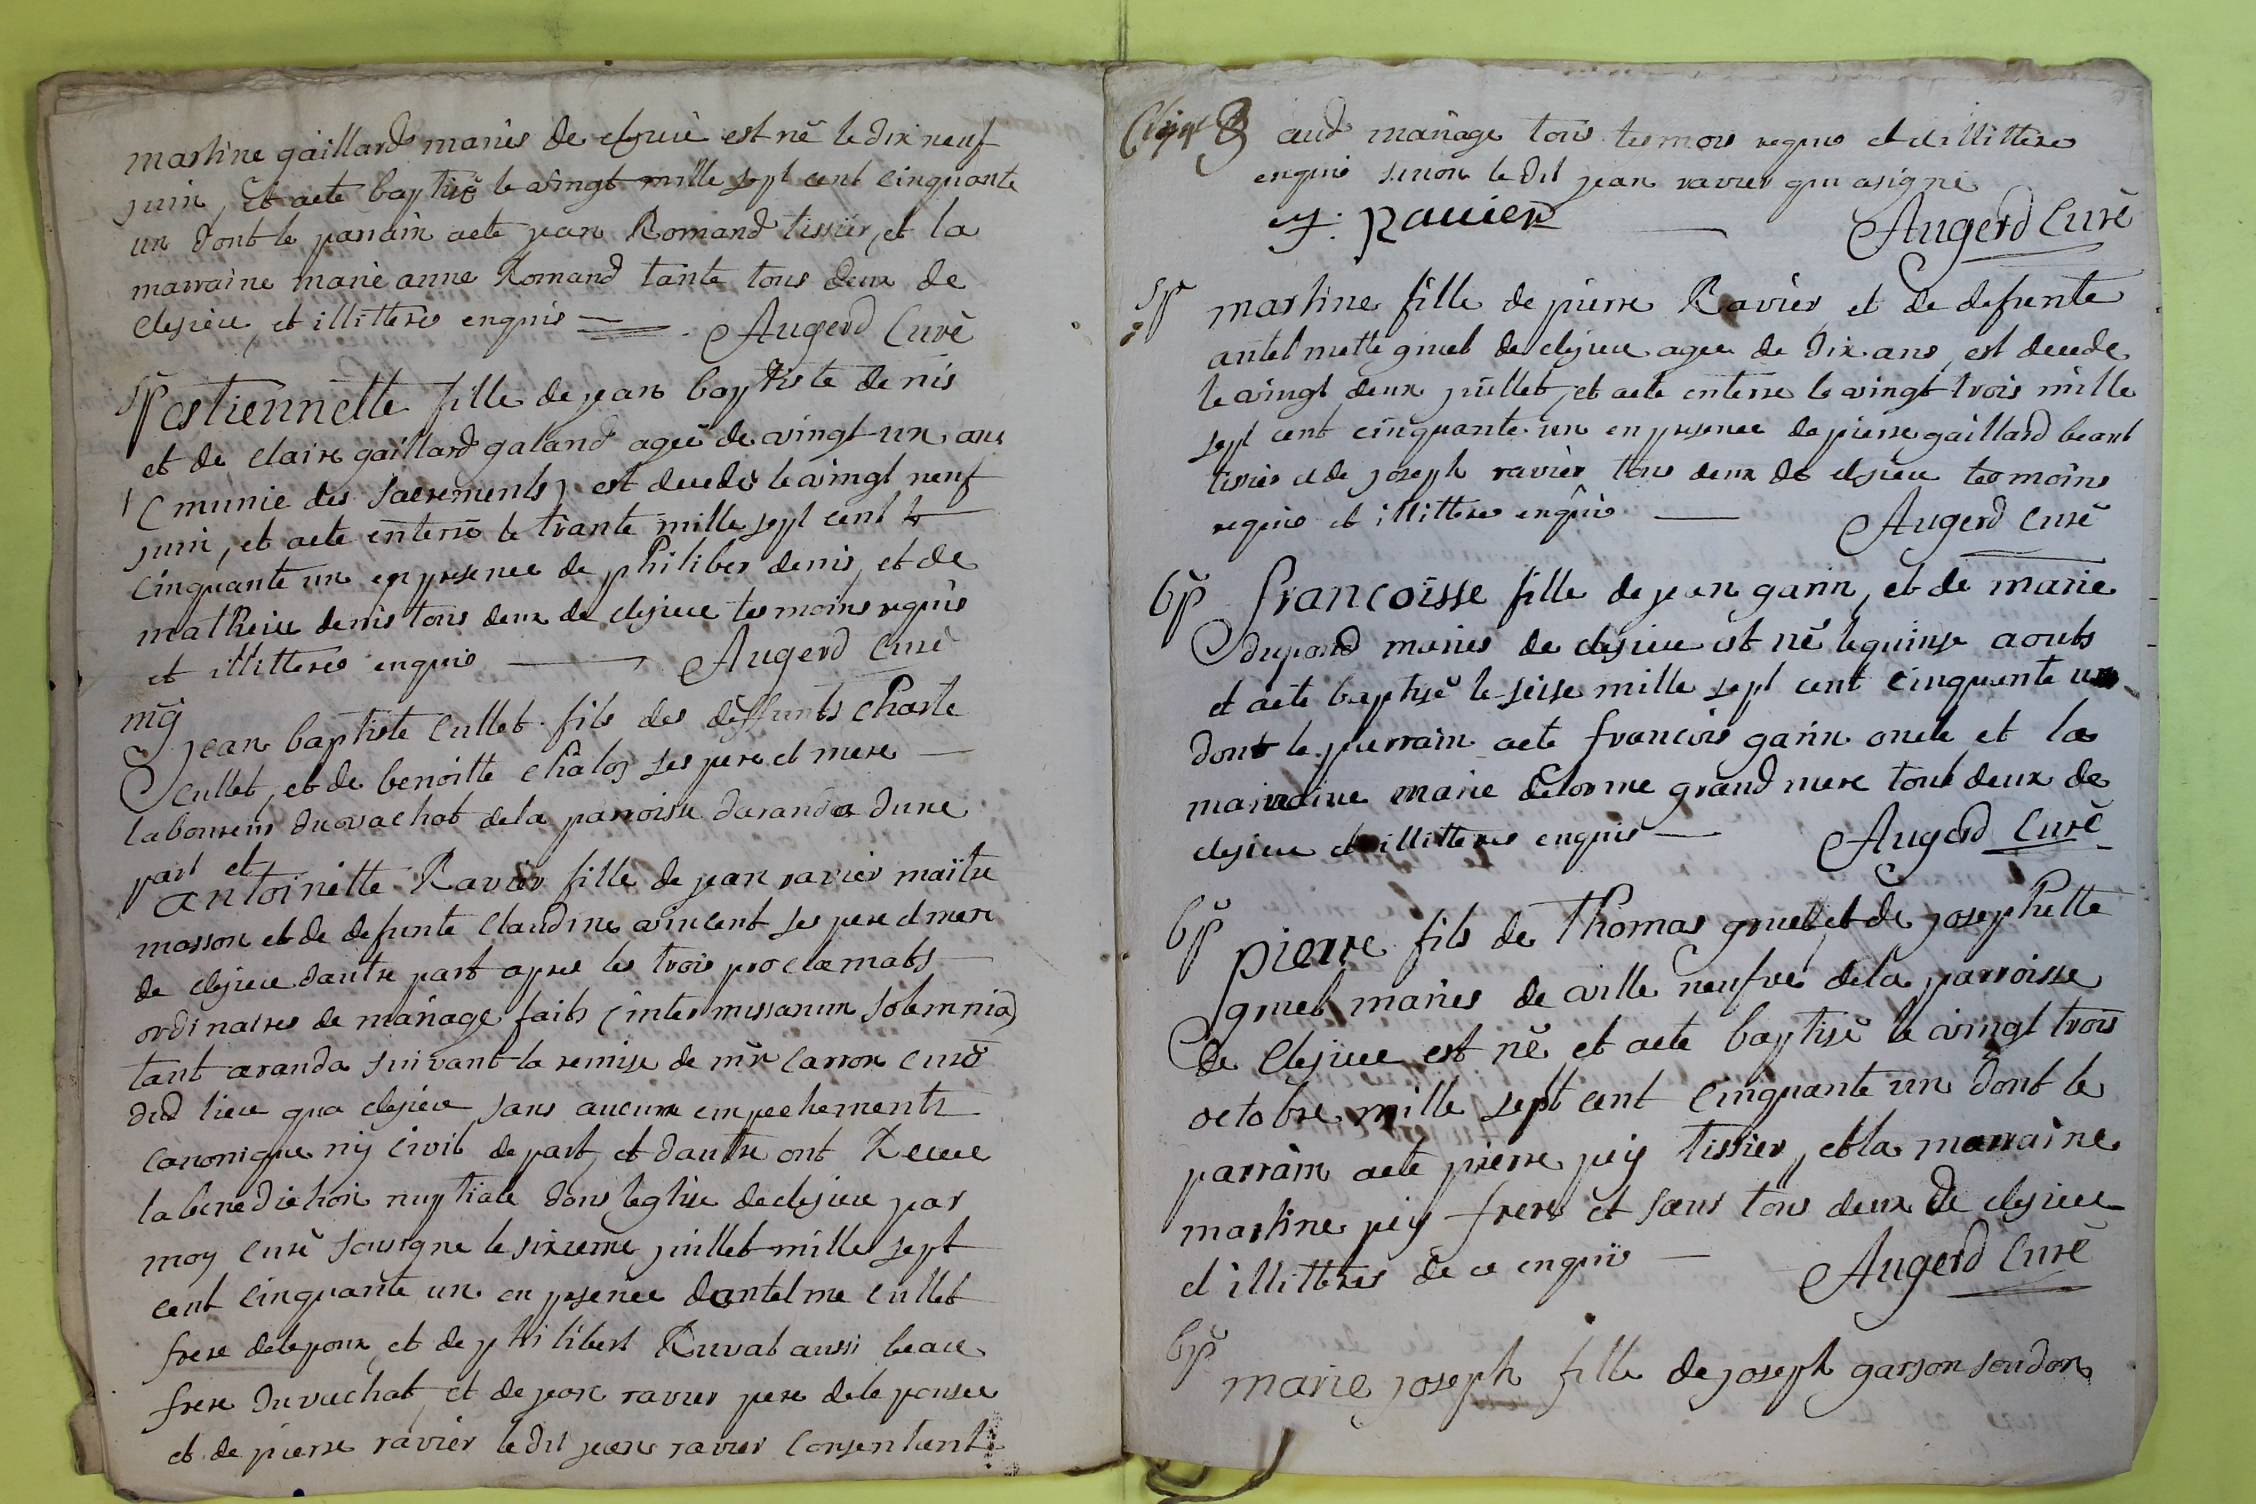 martine gaillard mariés de clesieu est né le dix neuf
juin, et aete baptisé le vingt mille sept cent cinquante
un dont le parrain aete jean Romand tissier, et la
marraine marie anne Romand tante tous deux de
clesieu, et illitterés enquis — Augerd Curé
Sp estiennette fille de jean baptiste denis
et de claire gaillard galand ageé de vingt-un ans
(munie des sacrements) est decedeé le vingt neuf
juin, et aete enterré le trante mille sept cent
cinquante un en presence de philiber denis, et de
matheiu denis tous deux de clesieu tesmoins requis
et illitteres enquis — Augerd Curé
mg
jean baptiste Cullet fils des deffunts Charle
Cullet, et de benoitte Chaley ses pere et mere —
laboureur du vachat dela parroisse daranda dune
part et
antoinette Ravier fille de jean ravier maître
masson et de defunte Claudine vincent ses pere et mere
de clesieu dautre part apres les trois proclamats —
ordinaires de mariage faits (inter missarum solemnia)
tant aranda suivant la remise de mr Carron Curé
dud lieu qua clesieu sans aucum empechements
canonique ny civil de part, et dautre ont Receue
la benediction nuptiale dans leglise de clesieu par
moy Curé sousigne le sixieme juillet mille sept
cent cinquante un en presence dantelme Cullet
frere delepoux, et de philibert Ruvat aussi beau
frere du vachat, et de jean ravier pere dele pouse
et de pierre ravier le dit jean ravier Consentent
aud mariage tous tesmoins requis et illittere
enquis sinon le dit jean ravier qui asigné
J. Ravier — Augerd Curé
Sp martine fille de pierre Ravier et de defunte
antelmette gruel de clesieu agee de dix ans, est decede
le vingt deux juillet, et aete enterre le vingt-trois mille
sept cent cinquante un en presence de pierre gaillard beant
tissier et de joseph ravier tous deux de clesieu tesmoins
requis et illittere enquis — Augerd Curé
bp francoisse fille de jean garin, et de marie
dupond mariés de clesieu est né le quinse aouts
et aete baptisé le seisse mille sept cent cinquante un
dont le parrain aete francois garin oncle et la
marraine marie delorme grand mere tout deux de
clesieu et illitteres enquis — Augerd Curé
bp
pierre fils de Thomas gruel, et de josephette
gruel mariés de ville neufve dela parroisse
de Clesieu est né et aete baptisé le vingt trois
octobre mille sept cent cinquante un dont le
parrain aete pierre pey tissier, et la marraine
martine pey frere et sœur tous deux de clesieu
et illitteres de ce enquis — Augerd Curé
bp
marie joseph fille de joseph garson soudon